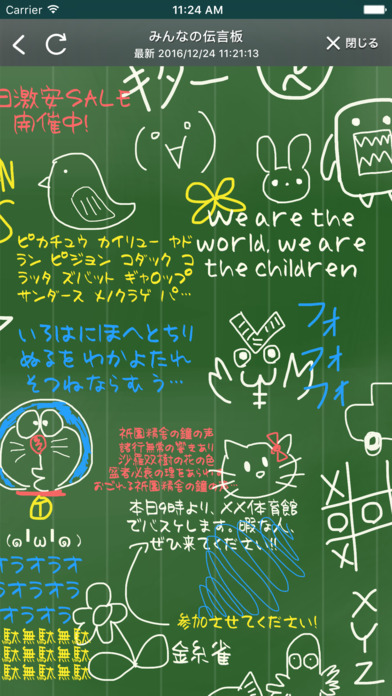 Carrier
11:24 AM
みんなの伝言板
最新 2016/12/24 11:21:13
閉じる
キター
日激安SALE
開催中!
N
S
we are the
world, we are
the children
ピカチュウ カイリュー ヤド
ラン ピジョン コダック コ
ラッタ ズバット ギャロップ
サンダース メノクラゲ パ…
いろはにほへとちり
ぬるを わかよたれ
そつねならむ う…
フォ
フォ
フォ
祇園精舎の鐘の声
諸行無常の響きあり
沙羅双樹の花の色
盛者必衰の理をあらわす
おごれる祇園精舎の鐘の
本日9時より、メメ体育館
でバスケします。暇な人、
ぜひ来てください!!
オラオラオ
オラオラオラ
オラオラ
駄無駄無駄
駄無駄無駄
駄無駄無駄
参加させてください!
金糸雀
X
O O
X
X
Y
Z